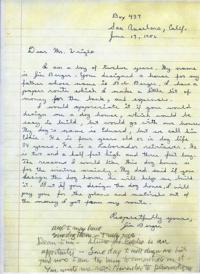 Box 437
San Anselmo, Calif.
June 19, 1956
Dear Mr. Wright
I am a boy of twelve years. My name
is Jim Berger. You designed a home for my
father whose name is Bob Berger. I have a
paper route which I make a little bit of
money for the bank, and expenses.
I would appreciate it if you would
design me a dog house, which would be
easy to build, but would go with our house.
My dog's name is Edward, but we call him
Eddie. He is four years old or in dog life
28 years. He is a Labrador retriever. He
is two and a half feet high and three feet long.
The reasons I would like this dog house is
for the winters mainly. My dad said if you
design the dog house he will help me build
it. But if you design the dog house I will
pay you for the plans and materials out of
the money I get from my route.
Respectfully yours,
Jim Berger
Dear Jim:
opportunity